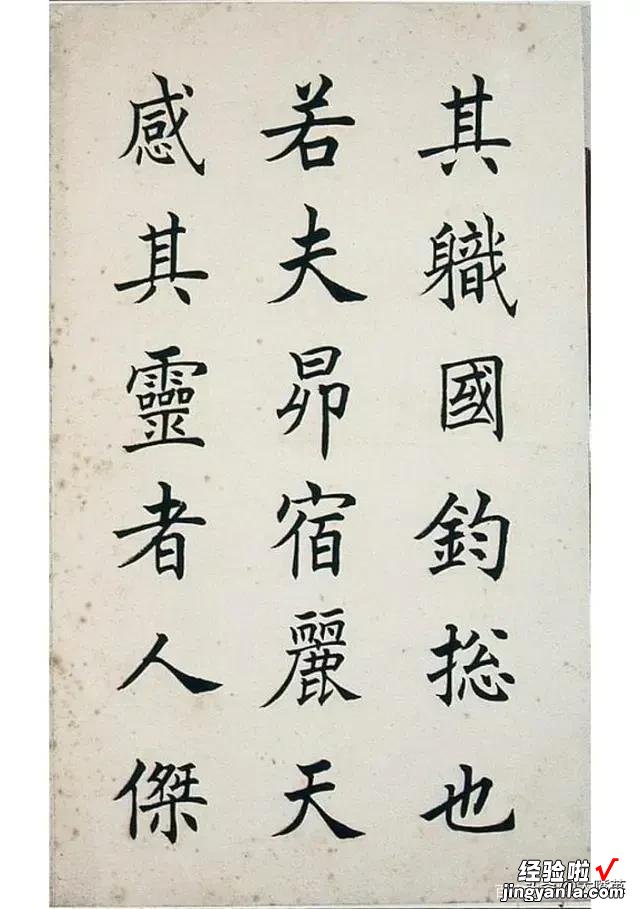 其職國鈞捴也
若夫昴宿麗天
感其靈者人傑
经验啦√
jingyanla.com